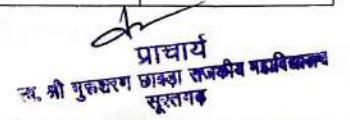 प्राचार्य
स्व. श्री गुरूशरण छाबड़ा राजकीय महाविद्यालय
सूरतगढ़